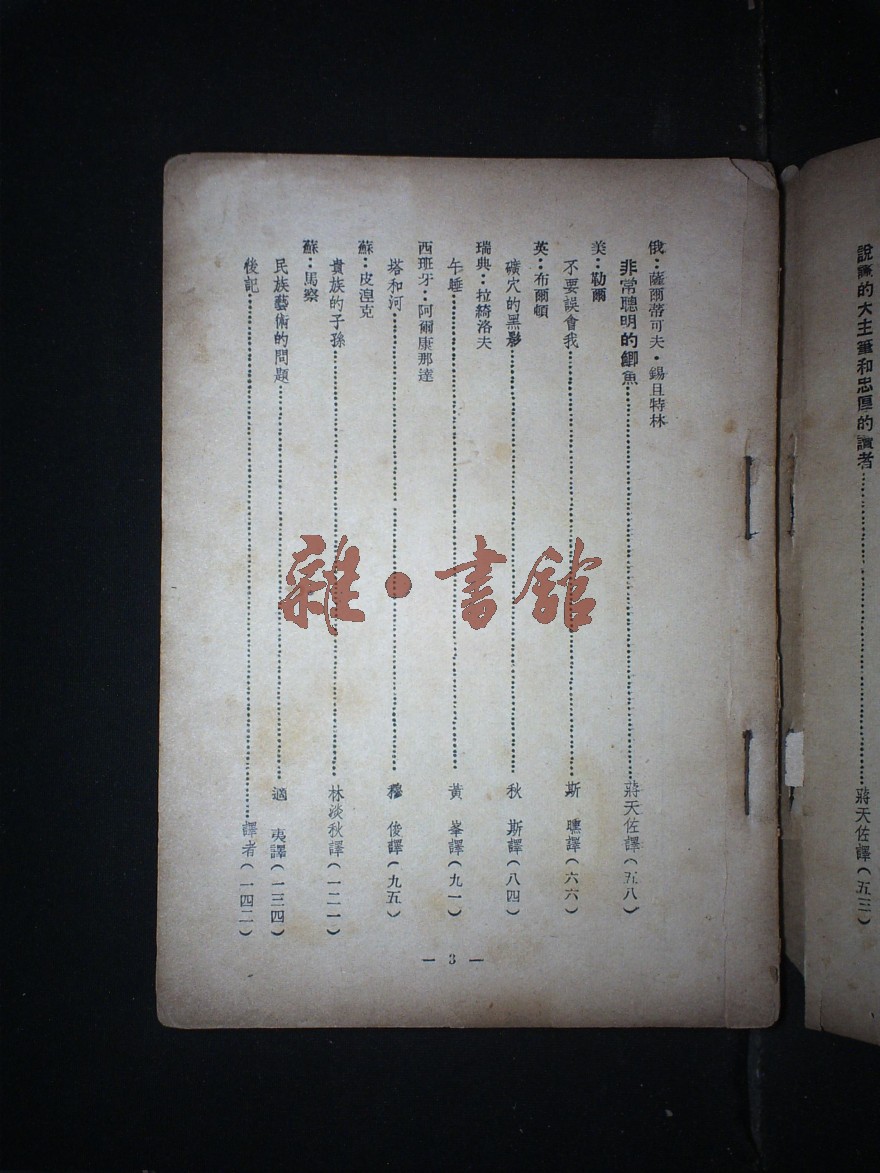 說謊的大主筆和忠厚的讀者……蔣天佐譯(五三)
俄：薩爾蒂可夫・錫且特林
非常聰明的鯽魚……蔣天佐譯(五八)
美：勒爾
不要誤會我……斯 譯(六六)
英：布爾頓
礦穴的黑影……秋 斯譯(八四)
瑞典：拉綺洛夫
午睡……黃 峯譯(九一)
西班牙：阿爾康那達
塔和河……穆 俊譯(九五)
蘇：皮湼克
貴族的子孫……林淡秋譯(一二一)
蘇：馬察
民族藝術的問題……適 夷譯(一三四)
後記……譯者(一四二)
— 3 —
雜・書館